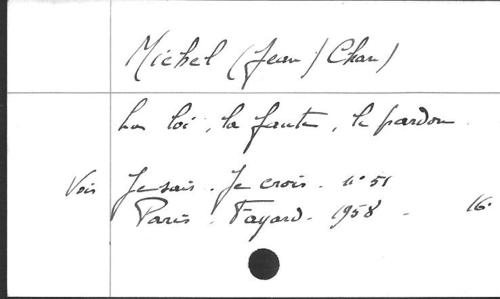 Michel (Jean) Chan)
La loi, la faute, le pardon.
Vois Je sais. Je crois. n° 51
Paris. Fayard. 1958. 16°